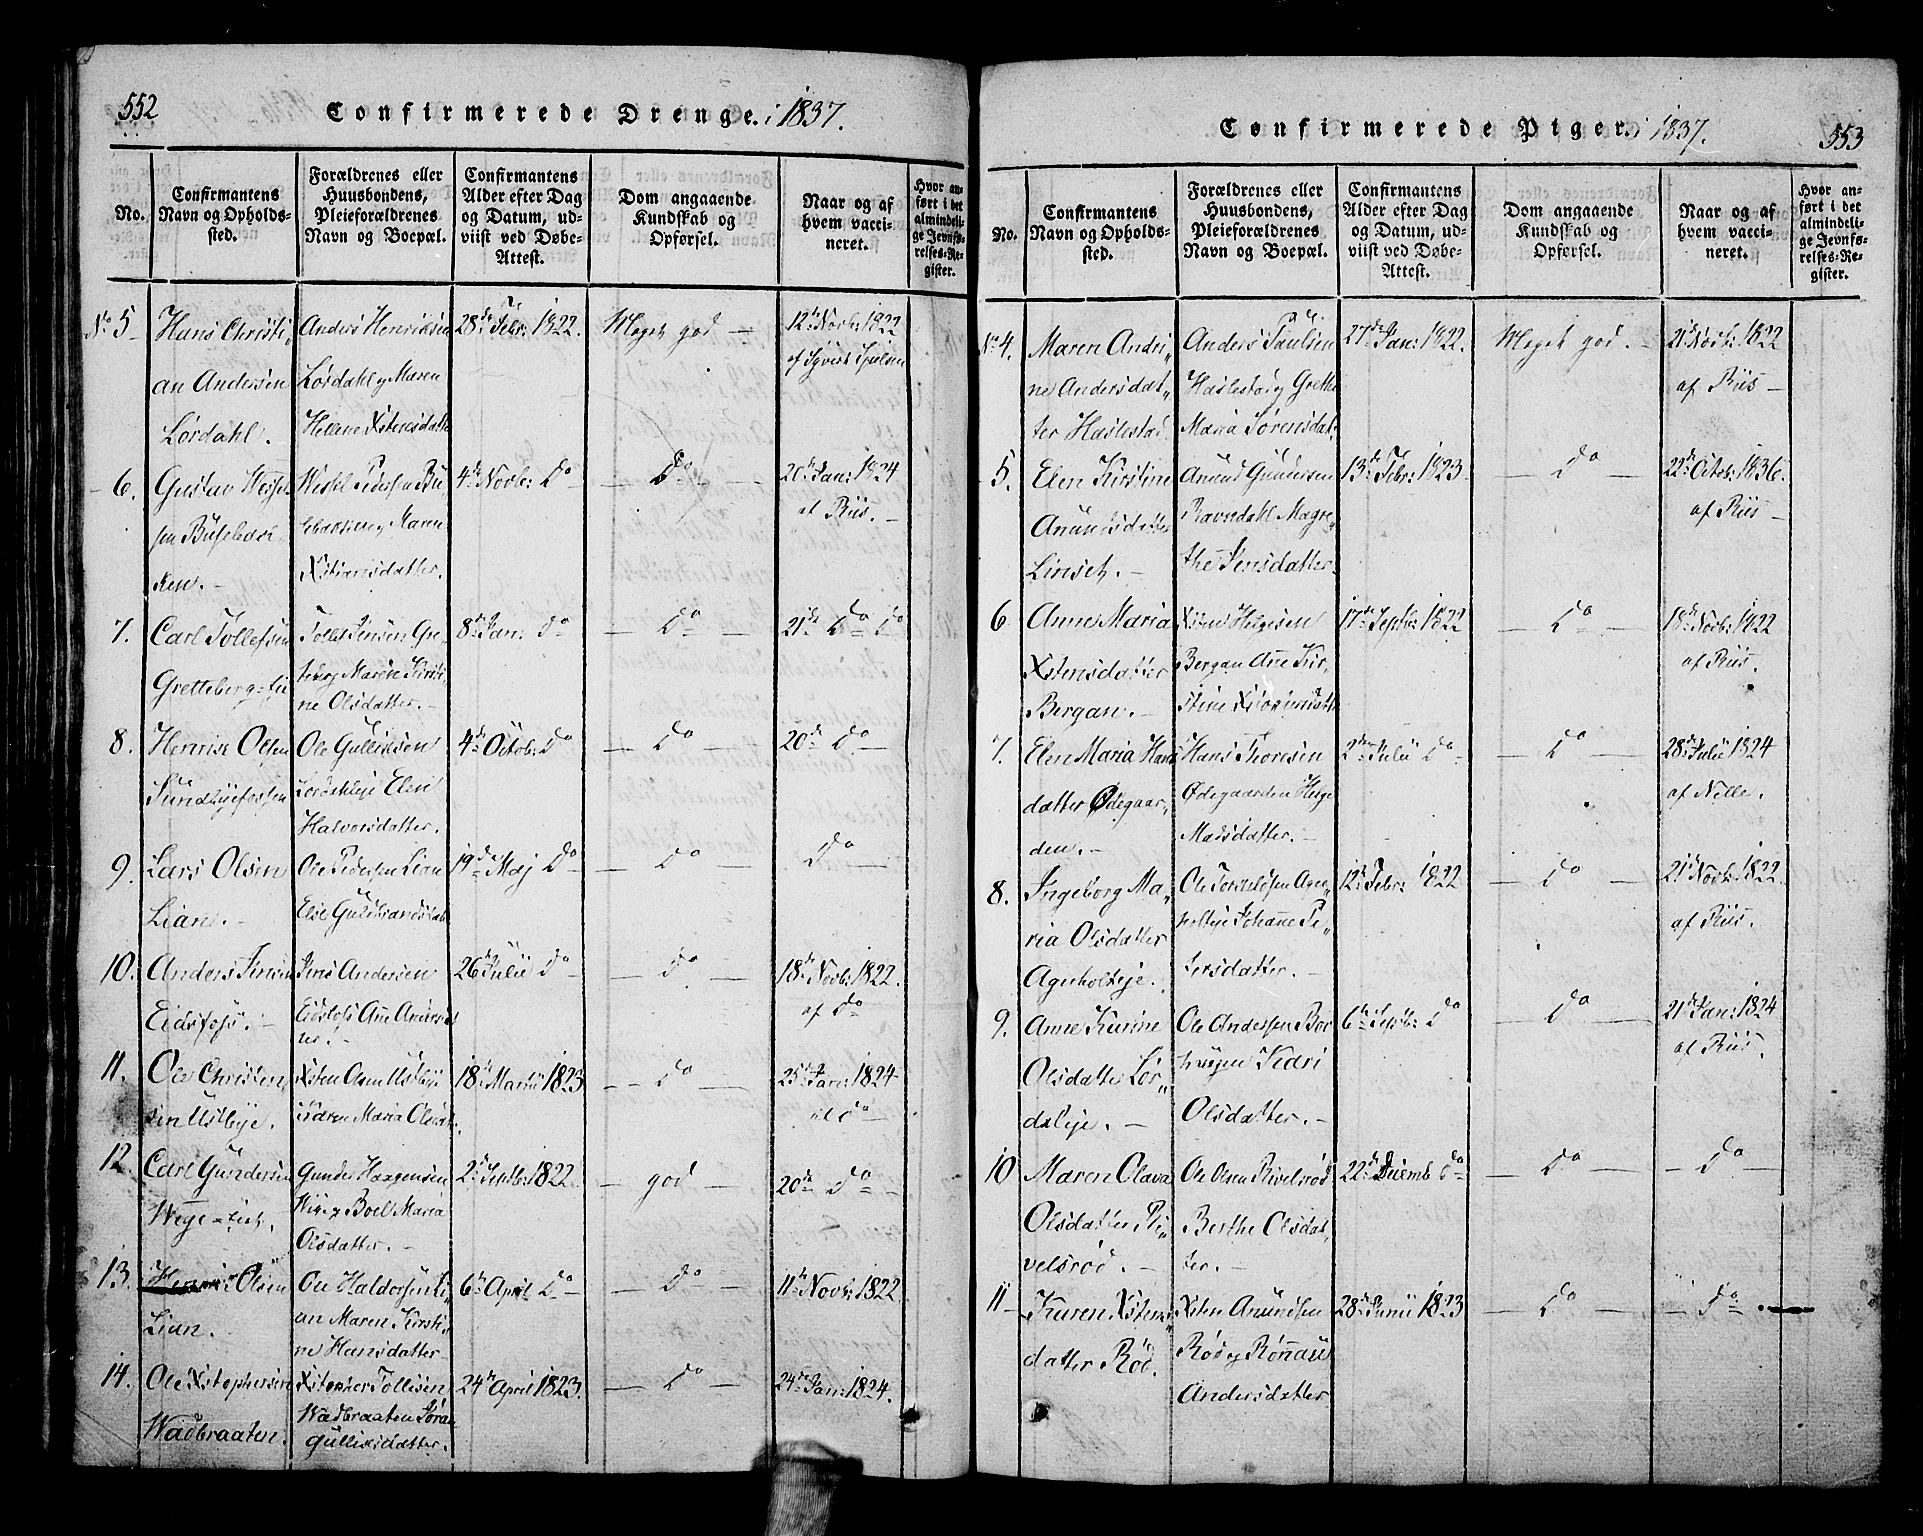 552
Confirmerede Drenge. i 1837.
No.
Confirmantens
Navn og Opholds-
sted.
Forældrenes eller
Huusbondens,
Pleieforældrenes
Navn og Boepæl.
Confirmantens
Alder efter Dag
og Datum, ud-
viist ved Døbe-
Attest.
Dom angaaende
Kundskab og
Opførsel.
Naar og af
hvem vacci-
neret.
Hvor an-
ført i det
almindeli-
ge Jevnfø-
relses-Re-
gister.
No 5
Hans Christi,,
an Andersen
Lørdahl.
Anders Henriksen
Lørdahl og Maren
Hellene Xstensdatter
28de Febr: 1822.
Meget god —
12te Novb: 1822
af
6.
Gustav
ken.
Maren
Xstiansdatter.
4de Novb: Do
Do
20de Jan: 1824
af Riis.
7.
Carl Tollefsen
Gretteberg
Jensen
og Maren Kirsti,,
ne Olsdatter.
8de Jan: Do
Do
21de Do Do
8.
Olsen
Ole Gulliksen
Elen
Halvorsdatter.
4de Octob: Do
Do
20de Do
9.
Lars Olsen
Lian.
Ole Pedersen Lian
Else
19de Maj Do
Do
Do
10.
Anders Jensen
Eidsfoss.
Jens Andersen
Eidsfoss Ane
ter.
26de Julii Do
Do
18de Novb: 1822.
af Do
11.
Ole Christen,,
sen Ustbye.
Xsten Olsen Ustbye
Karen Maria
18de Martii 1823
Do
25de Jan: 1824
af Do
12.
Carl Gundersen
Gunder Haagensen
Boel Maria
Olsdatter.
2de Septb: 1822.
god
20de Do
13.
Olsen
Lian.
Ole Haldorsen Li,,
an Maren Kirsti,,
ne Hansdatter
6te April Do
Do
11te Novb: 1822
14.
Ole Xstophersen
Wadbraaten.
Xstopher Tollefsen
Wadbraaten
Gulliksdatter.
24de April 1823.
Do
24de Jan: 1824.
Confirmerede Piger. i 1837.
553
No.
Confirmantens
Navn og Opholds-
sted.
Forældrenes eller
Huusbondens,
Pleieforældrenes
Navn og Boepæl.
Confirmantens
Alder efter Dag
og Datum, ud-
viist ved Døbe-
Attest.
Dom angaaende
Kundskab og
Opførsel.
Naar og af
hvem vacci-
neret.
Hvor an-
ført i det
almindeli-
ge Jevnfø-
relses-Re-
gister.
No 4.
Maren Andri,,
ne Andersdat,,
ter Haslestad
Anders Paulsen
Haslestad og Grethe
Maria Sørensdat.
27de Jan: 1822.
Meget god.
21de Novb: 1822
af Riis
5.
Elen Kirstine
Anundsdatter
Linset.
Anund Gundersen
Ravndahl Magre,,
the Jensdatter.
13de Febr: 1823
Do
22de Octob: 1836.
af Riis
6
Anne Maria
Xstensdatter
Bergan.
Xsten Helgesen
Bergan Ane Kir,,
stine
17de Septb: 1822
Do
18de Novb: 1822
af Riis.
7.
Elen Maria Hans
datter Ødegaar,,
den.
Hans Thoresen
Ødegaarden Helge
Madsdatter.
2den Julii Do
Do
28de Julii 1824
af Nelle.
8.
Ingeborg Ma,,
ria Olsdatter
Agerholteje.
Ole Torkildsen
Johanne Pe,,
tersdatter.
12te Febr: 1822
Do
21de Novb: 1822
af Riis.
9.
Anne Karine
Olsdatter Lør,,
dsleje.
Ole Andersen
Kari
Olsdatter.
6te Septb: Do
Do
21de Jan: 1824
af Riis.
10
Maren Olava
Olsdatter Ri,,
velsrød.
Ole Olsen Rivelsrød
Berthe Olsdat,,
ter.
22de Decemb Do
Do
Do
11
Karen Xstens,,
datter Rød.
Xsten Anundsen
Rød og Rønnau
Andersdatter
28de Junii 1823
Do
Do